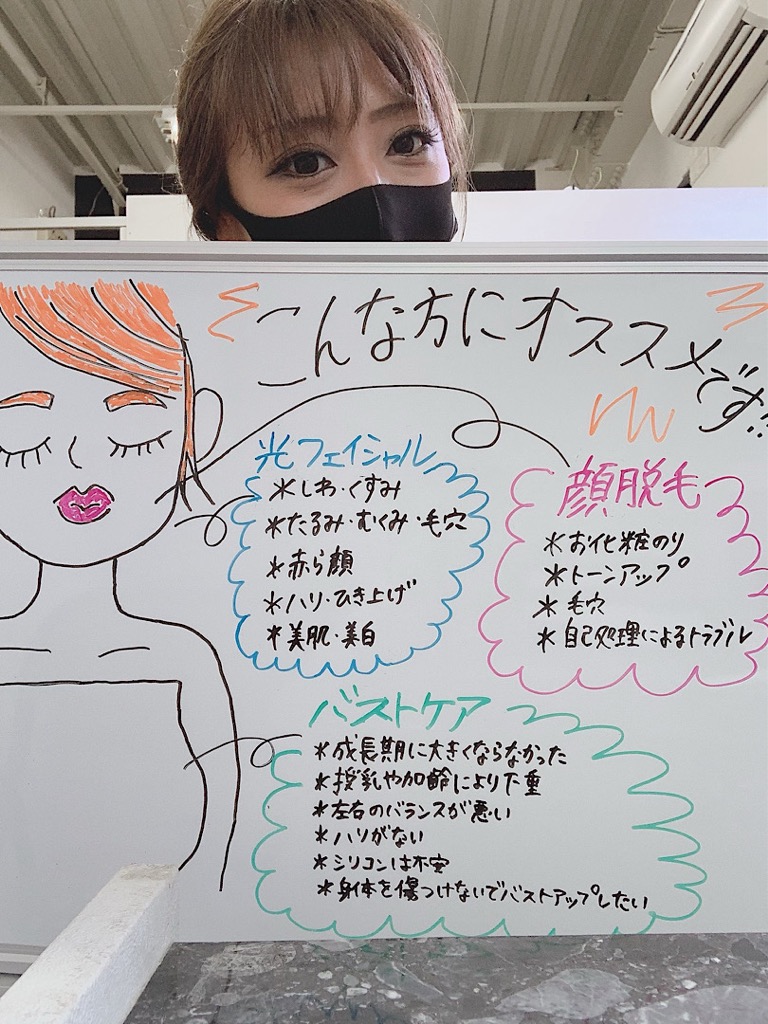 こんな方にオススメです!!
光フェイシャル
＊しわ・くすみ
＊たるみ・むくみ・毛穴
＊赤ら顔
＊ハリ・ひき上げ
＊美肌・美白
顔脱毛
＊お化粧のり
＊トーンアップ
＊毛穴
＊自己処理によるトラブル
バストケア
＊成長期に大きくならなかった
＊授乳や加齢により下垂
＊左右のバランスが悪い
＊ハリがない
＊シリコンは不安
＊身体を傷つけないでバストアップしたい